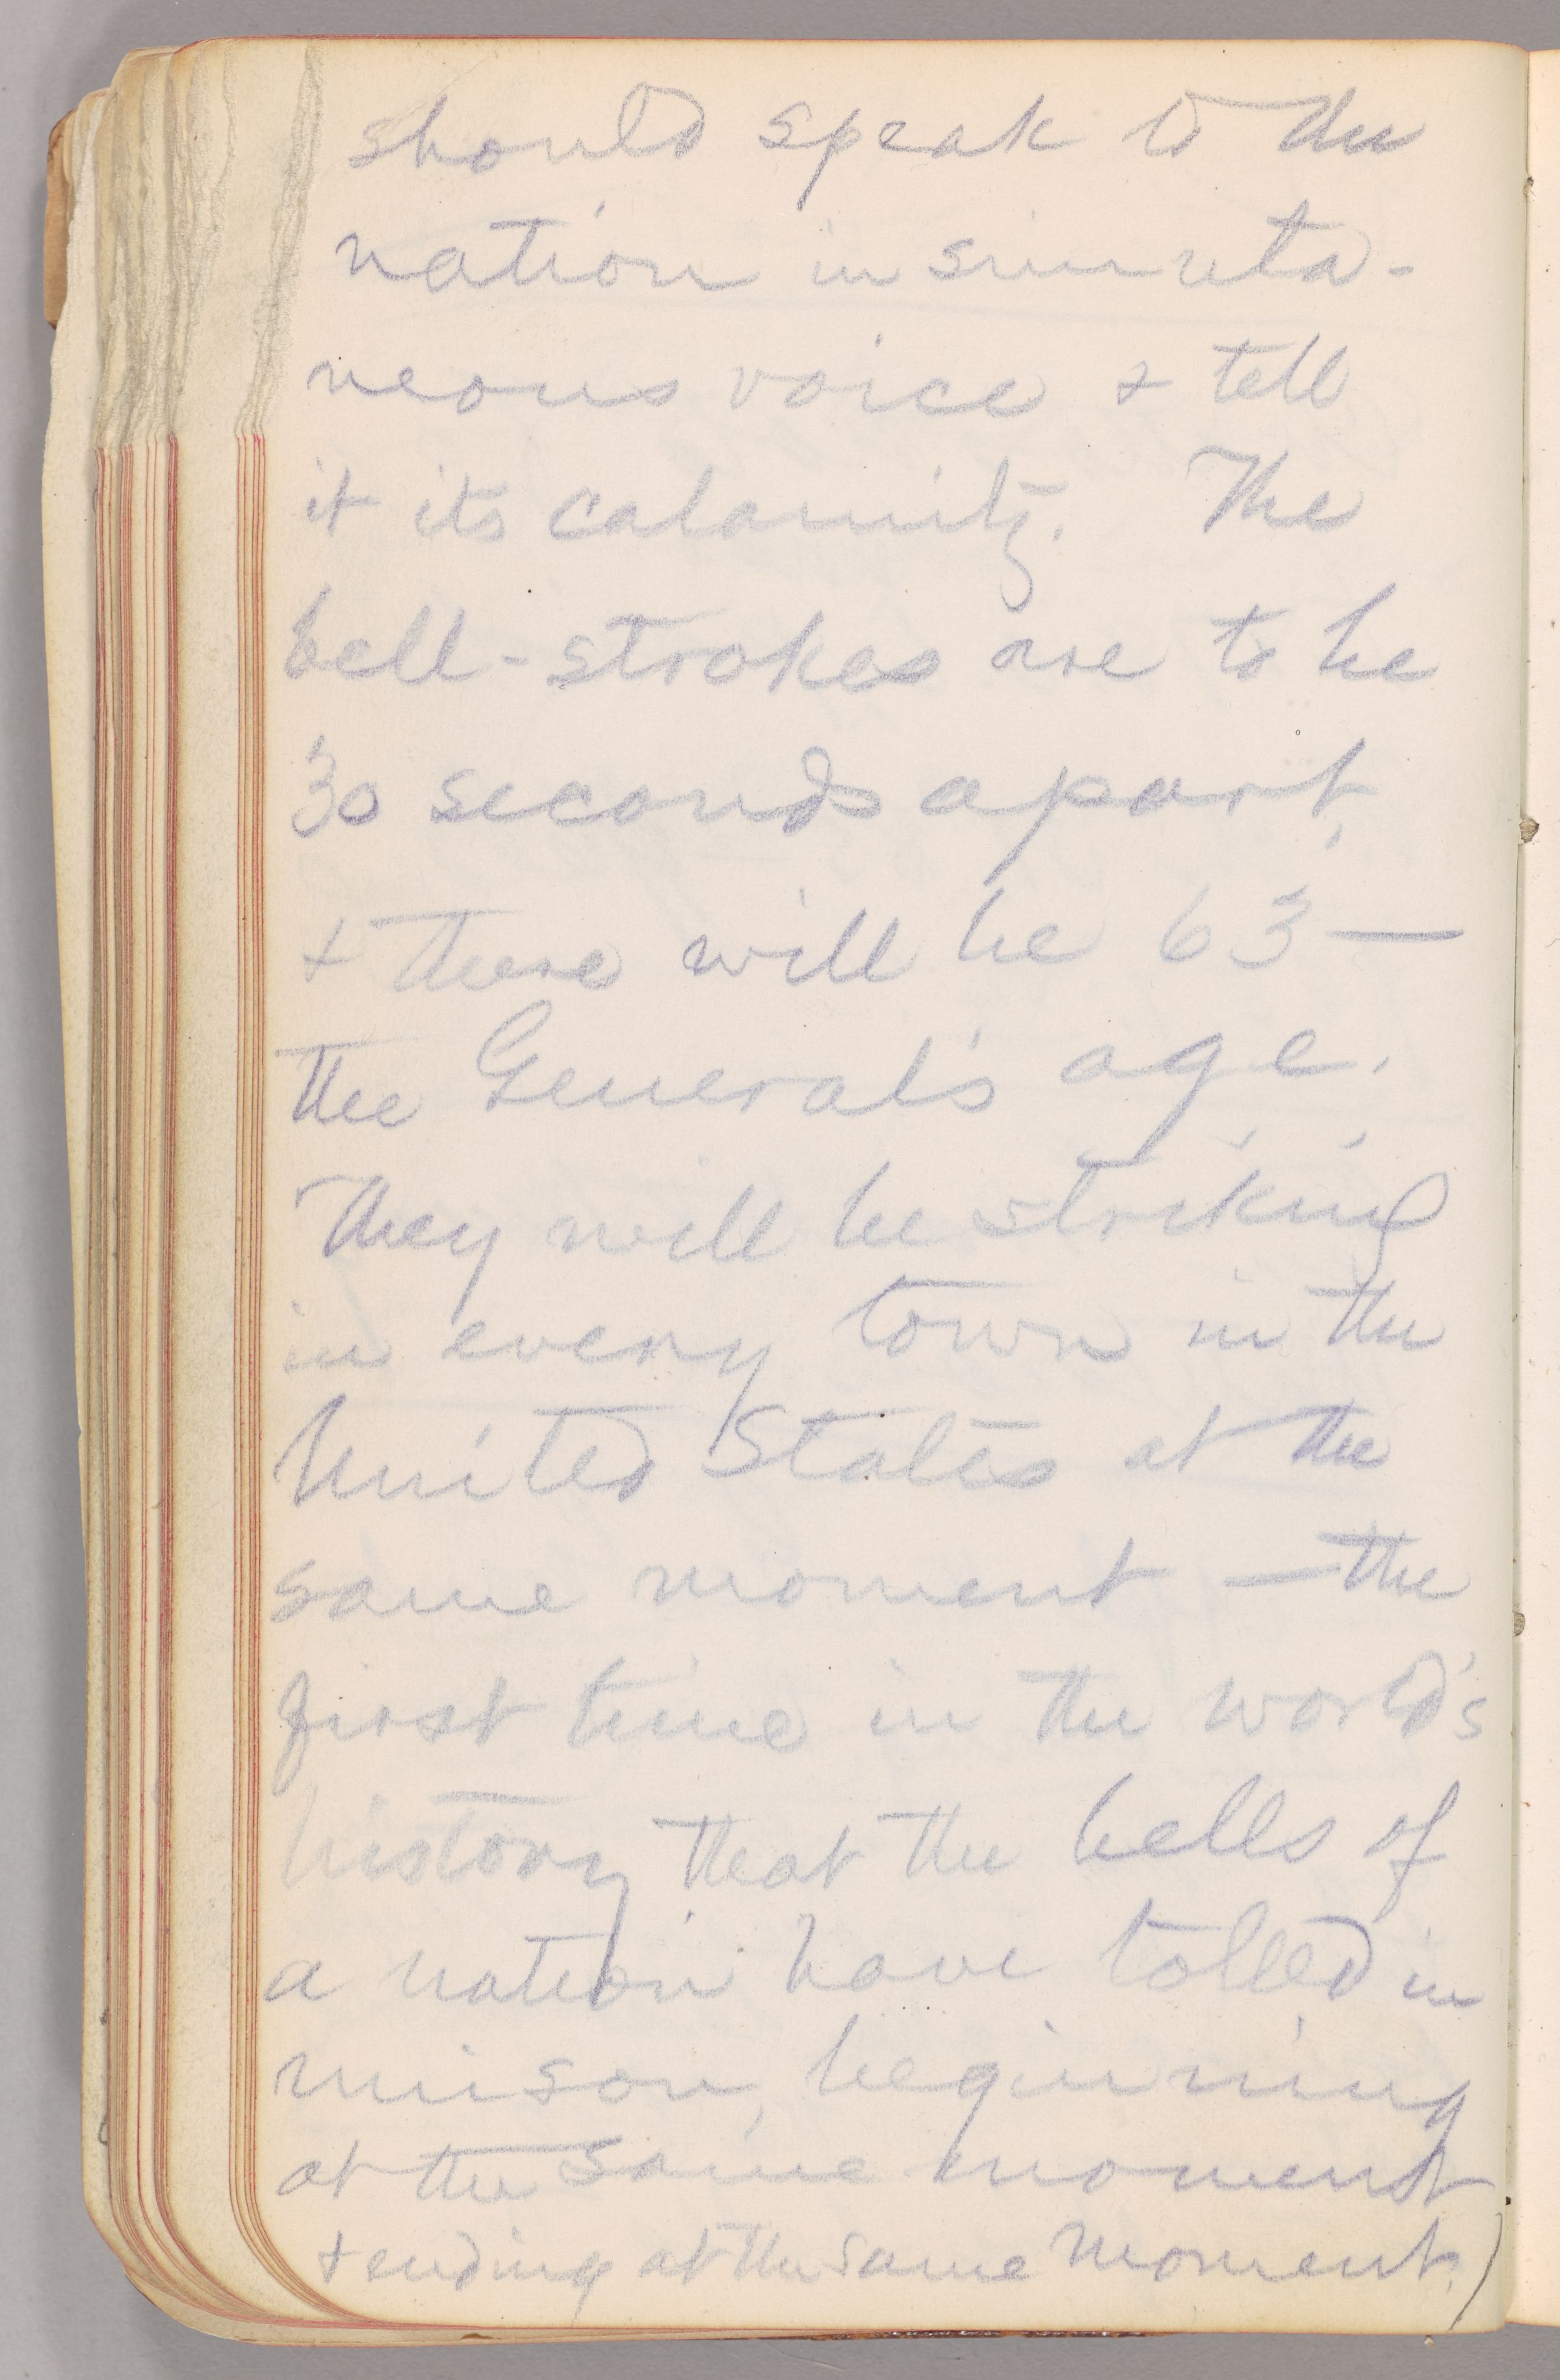 should speak to the
nation in simulta-
neous voice & tell
it its calamity. The
bell-strokes are to be
30 seconds apart,
& there will be 63 —
the General's age.
They will be striking
in every town in the
United States at the
same moment — the
first time in the world's
history that the bells of
a nation have tolled in
unison, beginning
at the same moment
& ending at the same moment.)